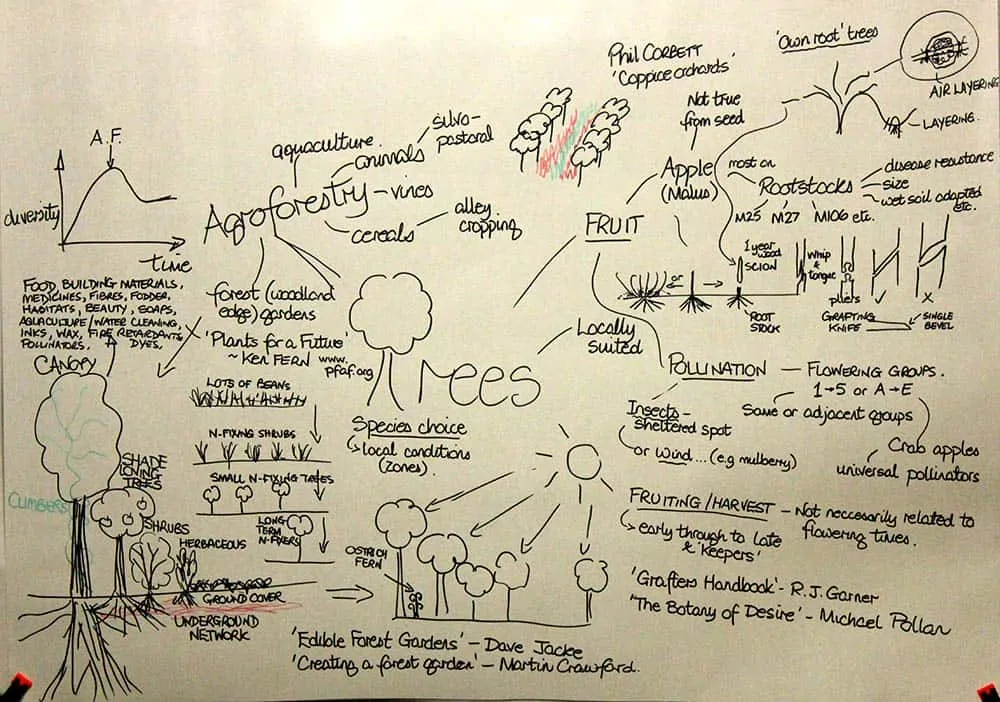 A.F.
diversity
TIME
FOOD, BUILDING MATERIALS,
MEDICINES, FIBRES, FODDER,
HABITATS, BEAUTY, SOAPS,
AQUACULTURE/WATER CLEANING,
INKS, WAX, FIRE RETARDANTS,
POLLINATORS. DYES,
Agroforestry
aquaculture
animals
silvo-
pastoral
vines
alley
cropping
cereals
forest (woodland
edge) gardens
'Plants for a Future'
~ Ken FERN www.
pfaf.org
Phil CORBETT
'Coppice orchards'
'Own root' trees
AIR LAYERING
LAYERING.
Not true
from seed
Apple
(Malus)
most on
Rootstocks
disease resistance
size
wet soil adapted
etc.
M25 M27 M106 etc.
FRUIT
or
1 year
wood
SCION
ROOT
STOCK
Whip
&
tongue
pliers
✓
X
GRAFTING
KNIFE
SINGLE
BEVEL
Locally
suited
Trees
Species choice
local conditions
(zones).
POLLINATION — FLOWERING GROUPS.
1→5 or A→E
Same or adjacent groups
Crab apples
universal pollinators
Insects -
sheltered spot
or Wind... (e.g mulberry)
FRUITING/HARVEST - Not neccesarily related to
flowering times.
early through to late
& 'keepers'
'Grafters Handbook' - R.J. Garner
'The Botany of Desire' - Michael Pollan
CANOPY
SHADE
LOVING
TREES
CLIMBERS
SHRUBS
HERBACEOUS
GROUND COVER
UNDERGROUND
NETWORK
LOTS OF BEANS
N-FIXING SHRUBS
SMALL N-FIXING TREES
LONG
TERM
N-FIXERS
OSTRICH
FERN
'Edible Forest Gardens' - Dave Jacke
'Creating a forest garden' - Martin Crawford.